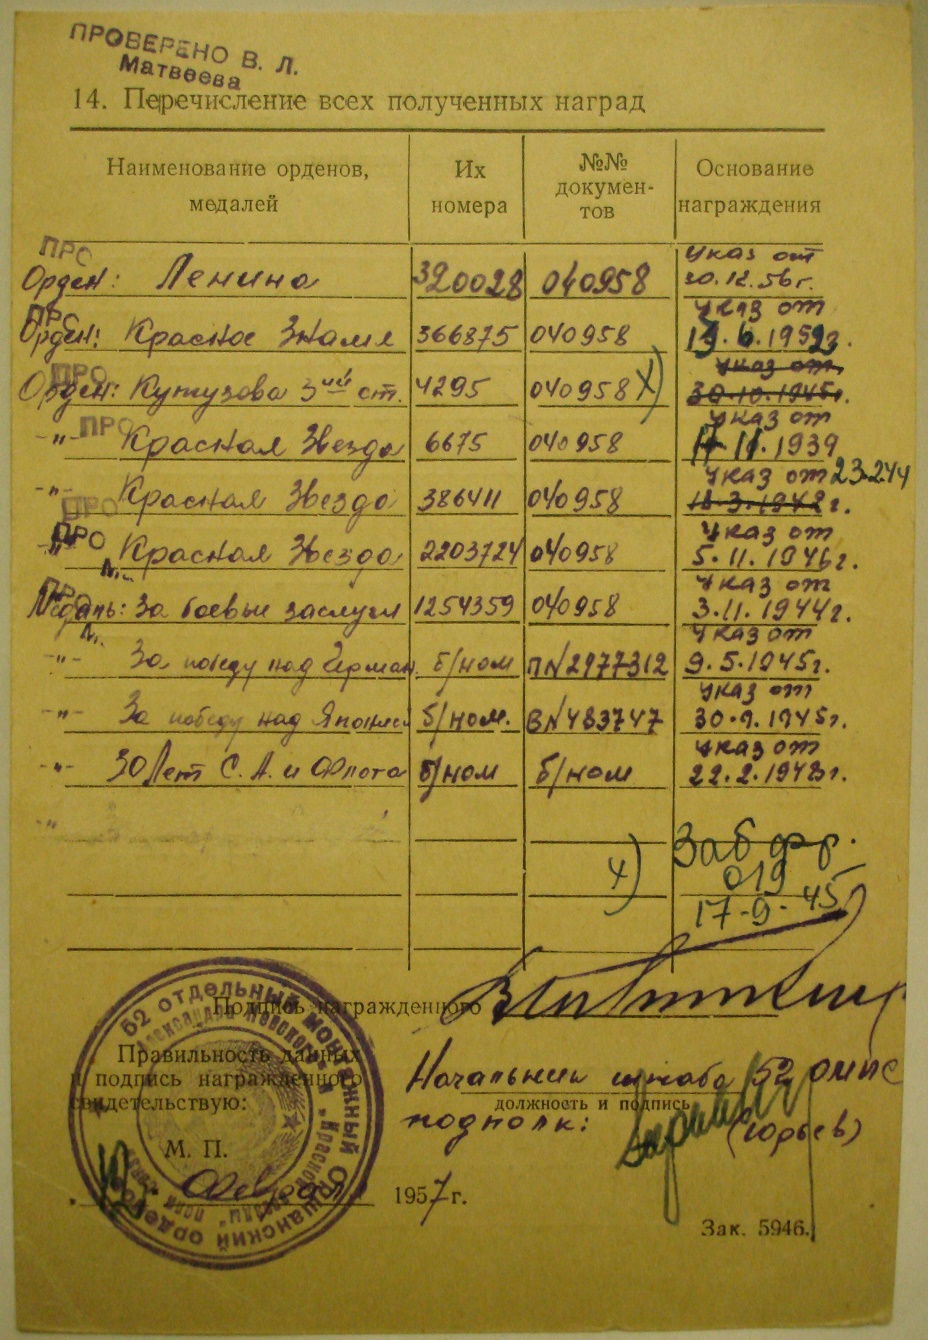 ПРОВЕРЕНО В. Л.
Матвеева
14. Перечисление всех полученных наград
Наименование орденов, медалей
Их номера
№№ докумен-
тов
Основание награждения
ПРО
Орден: Ленина 320028 040958 Указ от 30.12.56г.
ПРО
Орден: Красное Знамя 366875 040958 Указ от 19.6.1952г.
ПРО
Орден: Кутузова 3ий ст. 4295 040958 х) Указ от 30.10.1945г.
ПРО
-"- Красная Звезда 6675 040958 Указ от 17.11.1939
ПРО
-"- Красная Звезда 386411 040958 Указ от 23.2.44 18.3.1942г.
ПРО
-"- Красная Звезда 2203724 040958 Указ от 5.11.1946г.
ПРО
Медаль: За боевые заслуги 1254359 040958 Указ от 3.11.1944г.
-"- За победу над Герман. б/ном П№2977312 Указ от 9.5.1945г.
-"- За победу над Японией б/ном. В№483747 Указ от 30.9.1945г.
-"- 30 Лет С. А. и Флота б/ном б/ном Указ от 22.2.1948г.
-"-
х) Заб фр.
019
17-9-45
Подпись награжденного
Правильность данных
и подпись награжденного
свидетельствую:
Начальник штаба 52 ОМПС
должность и подпись
подполк: (Юрьев)
М. П.
Февраля 1957г.
Зак. 5946.
52 ОТДЕЛЬНЫЙ МОНТАЖНЫЙ ОРШАНСКИЙ ОРДЕНОВ
Александра Невского и Красной Звезды полк связи